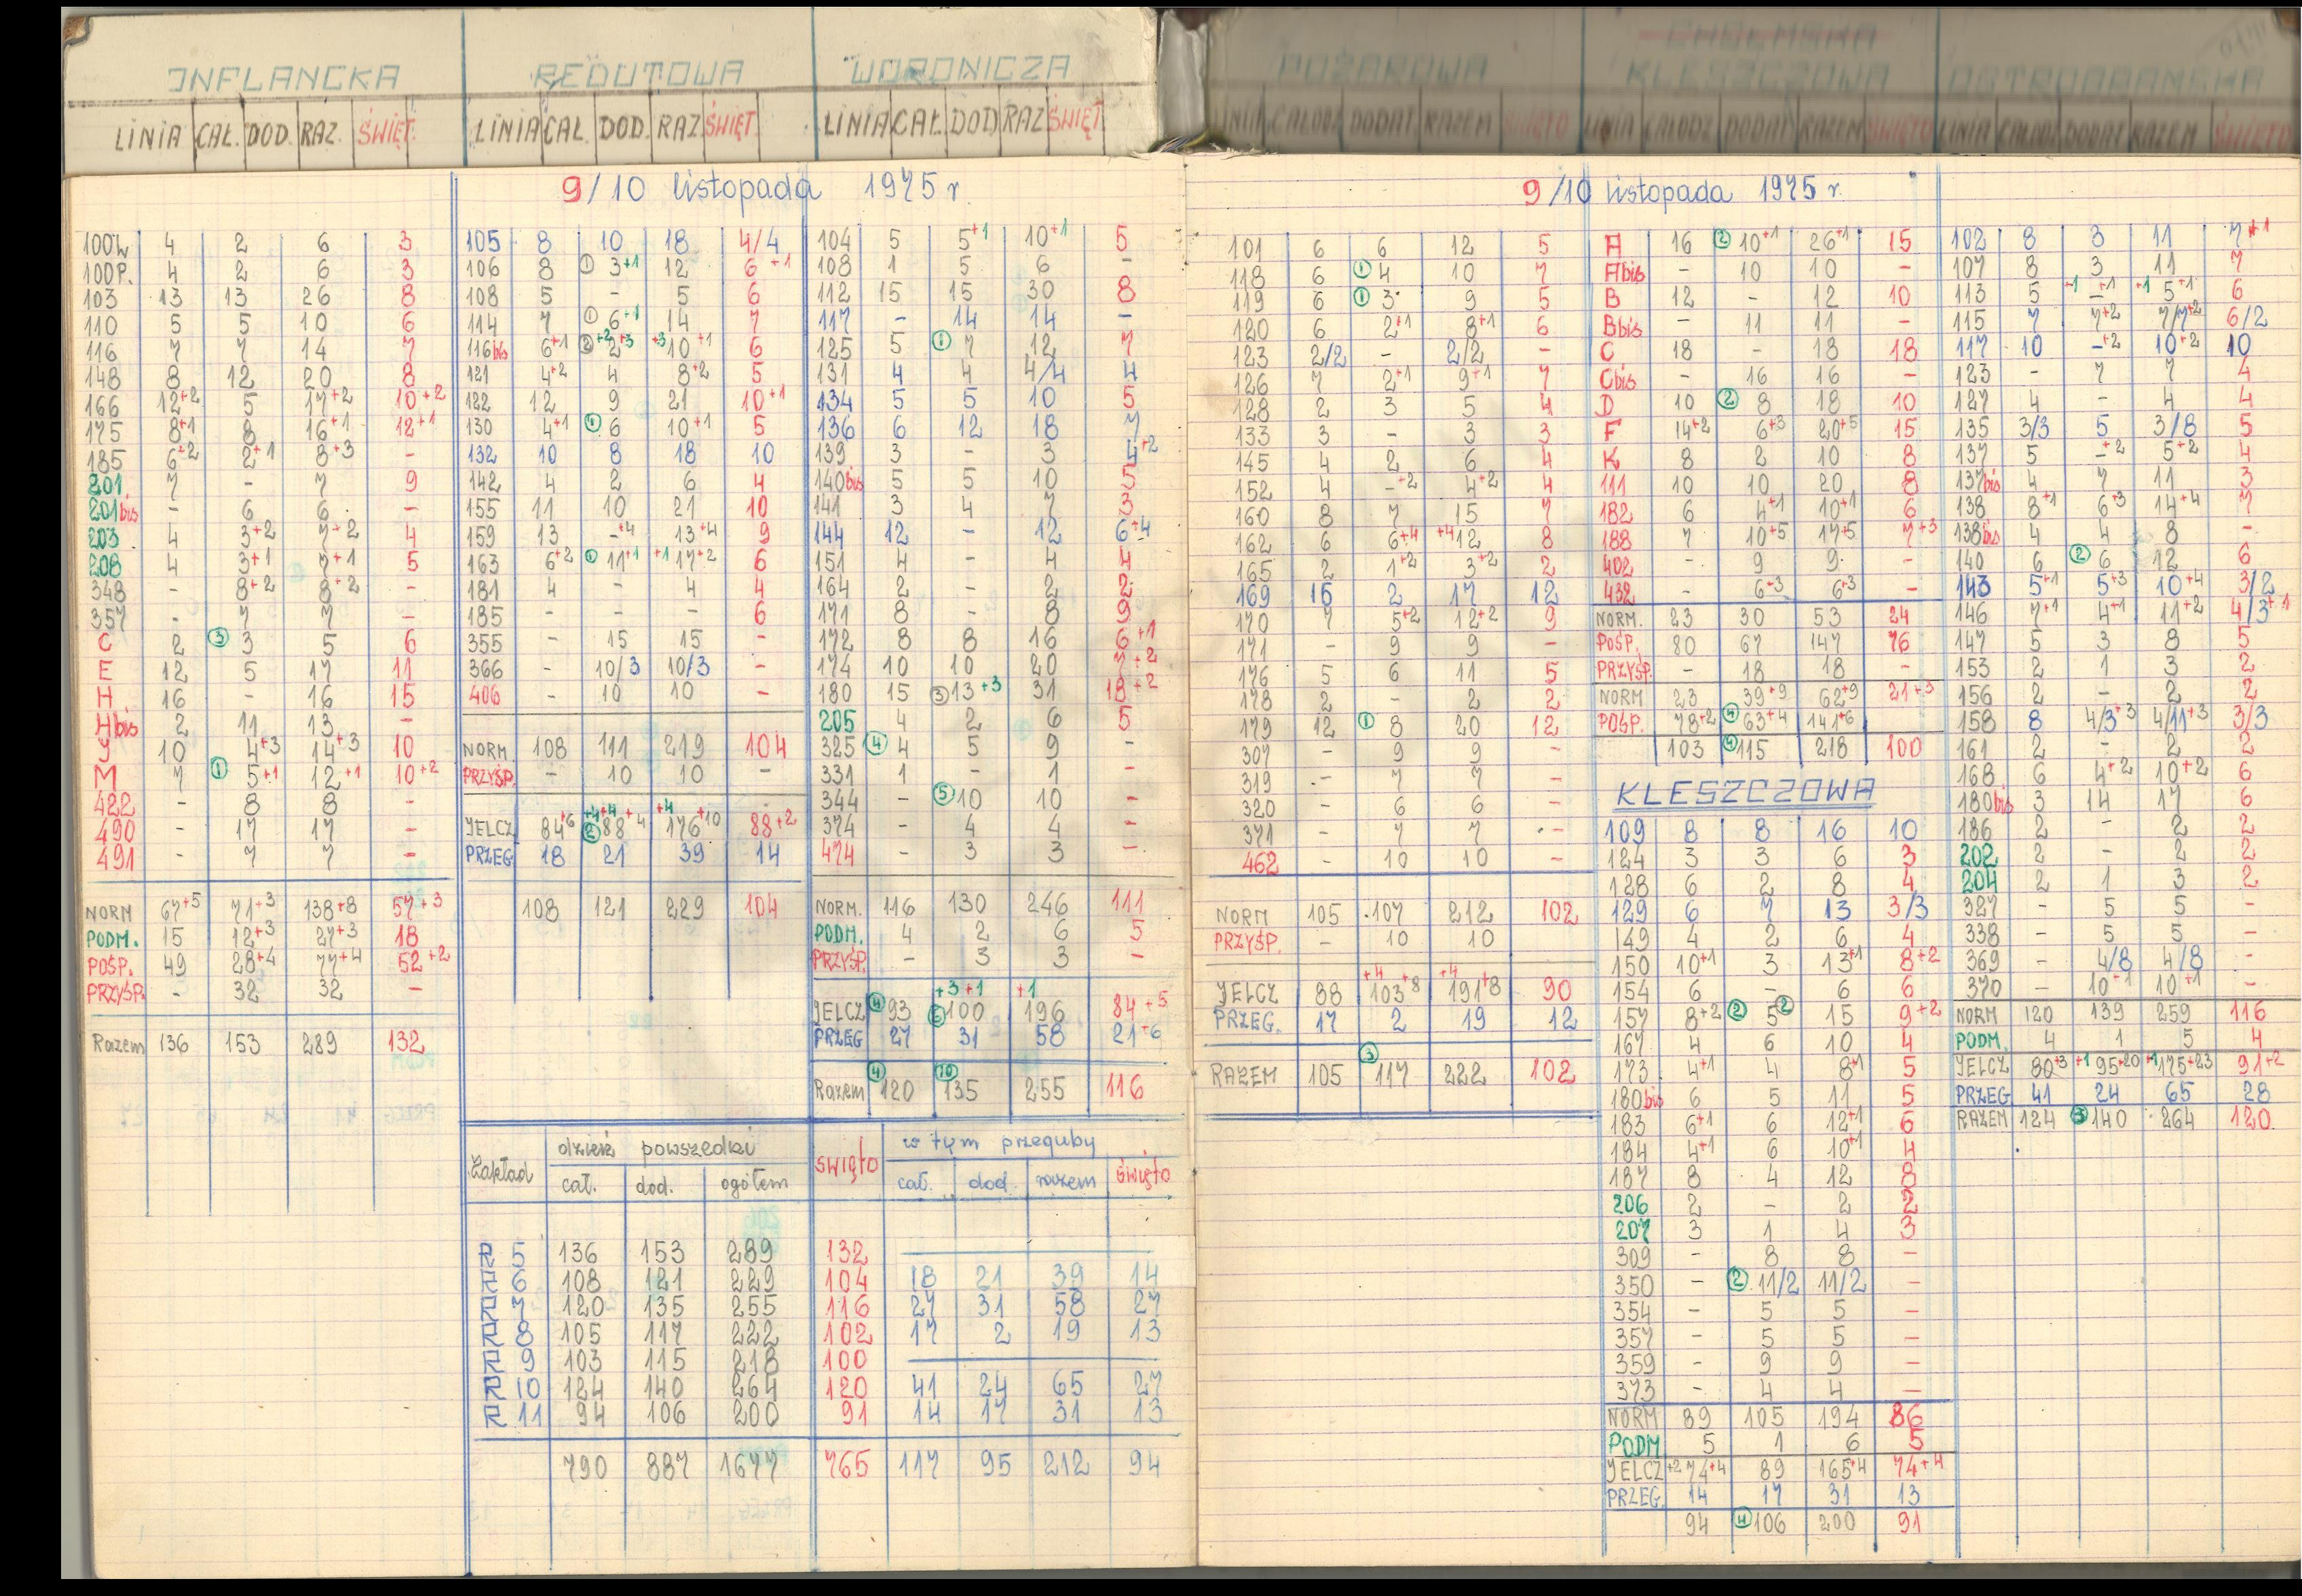 INFLANCKA
LINIA CAŁ. DOD. RAZ. ŚWIĘT.
REDUTOWA
LINIA CAŁ. DOD. RAZ ŚWIĘT.
WORONICZA
LINIA CAŁ. DOD RAZ ŚWIĘT
POŻAROWA
LINIA CAŁODZ DODAT RAZEM ŚWIĘTO
KLESZCZOWA
LINIA CAŁODZ DODAT RAZEM ŚWIĘTO
OSTROBRAMSKA
LINIA CAŁODZ DODAT RAZEM ŚWIĘTO
9/10 listopada 1975 r.
100W 4 2 6 3
100P. 4 2 6 3
103 13 13 26 8
110 5 5 10 6
116 7 7 14 7
148 8 12 20 8
166 12+2 5 17+2 10+2
175 8+1 8 16+1 12+1
185 6+2 2+1 8+3 -
201 7 - 7 9
201bis - 6 6 -
203 4 3+2 7+2 4
208 4 3+1 7+1 5
348 - 8+2 8+2 -
357 - 7 7 -
C 2 ③ 3 5 6
E 12 5 17 11
H 16 - 16 15
Hbis 2 11 13 -
J 10 4+3 14+3 10
M 7 ① 5+1 12+1 10+2
422 - 8 8 -
490 - 17 17 -
491 - 7 7 -
NORM 67+5 71+3 138+8 57+3
PODM. 15 12+3 27+3 18
POŚP. 49 28+4 77+4 52+2
PRZYŚP. - 32 32 -
Razem 136 153 289 132
105 8 10 18 4/4
106 8 ① 3+1 12 6+1
108 5 - 5 6
114 7 ① 6+1 14 7
116bis 6+1 ② +2 2+3 +3 10+1 6
121 4+2 4 8+2 5
122 12 9 21 10+1
130 4+1 ① 6 10+1 5
132 10 8 18 10
142 4 2 6 4
155 11 10 21 10
159 13 -+4 13+4 9
163 6+2 ① 11+1 +1 17+2 6
181 4 - 4 4
185 - - - 6
355 - 15 15 -
366 - 10/3 10/3 -
406 - 10 10 -
NORM 108 111 219 104
PRZYŚP. - 10 10 -
JELCZ 84+6 +4+4 ② 88+4 +4 176+10 88+2
PRZEG 18 21 39 14
108 121 229 104
104 5 5+1 10+1 5
108 1 5 6 -
112 15 15 30 8
117 - 14 14 -
125 5 ① 7 12 7
131 4 4 4/4 4
134 5 5 10 5
136 6 12 18 7
139 3 - 3 4+2
140bis 5 5 10 5
141 3 4 7 3
144 12 - 12 6+4
151 4 - 4 4
164 2 - 2 2
171 8 - 8 9
172 8 8 16 6+1
174 10 10 20 7+2
180 15 ③ 13+3 31 18+2
205 4 2 6 5
325 ④ 4 5 9 -
331 1 - 1 -
344 - ⑤ 10 10 -
374 - 4 4 -
474 - 3 3 -
NORM. 116 130 246 111
PODM. 4 2 6 5
PRZYŚP. - 3 3 -
+3 +1 +1
JELCZ ④ 93 ⑥ 100 196 84+5
PRZEG 27 31 58 21+6
Razem ④ 120 ⑩ 135 255 116
Zakład dzień powszedni święto w tym przeguby
cał. dod. ogółem cał. dod. razem święto
R 5 136 153 289 132
R 6 108 121 229 104 18 21 39 14
R 7 120 135 255 116 27 31 58 27
R 8 105 117 222 102 17 2 19 13
R 9 103 115 218 100
R 10 124 140 264 120 41 24 65 27
R 11 94 106 200 91 14 17 31 13
790 887 1677 765 117 95 212 94
9/10 listopada 1975 r.
101 6 6 12 5
118 6 ① 4 10 7
119 6 ① 3 9 5
120 6 2+1 8+1 6
123 2/2 - 2/2 -
126 7 2+1 9+1 7
128 2 3 5 4
133 3 - 3 3
145 4 2 6 4
152 4 -+2 4+2 4
160 8 7 15 7
162 6 6+4 +4 12 8
165 2 1+2 3+2 2
169 15 2 17 12
170 7 5+2 12+2 9
171 - 9 9 -
176 5 6 11 5
178 2 - 2 2
179 12 ① 8 20 12
307 - 9 9 -
319 - 7 7 -
320 - 6 6 -
371 - 7 7 -
462 - 10 10 -
NORM 105 107 212 102
PRZYŚP. - 10 10
JELCZ 88 +4 103+8 +4 191+8 90
PRZEG. 17 2 19 12
RAZEM 105 ③ 117 222 102
A 16 ② 10+1 26+1 15
Abis - 10 10 -
B 12 - 12 10
Bbis - 11 11 -
C 18 - 18 18
Cbis - 16 16 -
D 10 ② 8 18 10
F 14+2 6+3 20+5 15
K 8 2 10 8
111 10 10 20 8
182 6 4+1 10+1 6
188 7 10+5 17+5 7+3
402 - 9 9 -
432 - 6+3 6+3 -
NORM. 23 30 53 24
POŚP. 80 67 147 76
PRZYŚP. - 18 18 -
NORM 23 39+9 62+9 21+3
POŚP. 78+2 ④ 63+4 141+6
103 ④ 115 218 100
KLESZCZOWA
109 8 8 16 10
124 3 3 6 3
128 6 2 8 4
129 6 7 13 3/3
149 4 2 6 4
150 10+1 3 13+1 8+2
154 6 - 6 6
157 8+2 ② 5 ② 15 9+2
167 4 6 10 4
173 4+1 4 8+1 5
180bis 6 5 11 5
183 6+1 6 12+1 6
184 4+1 6 10+1 4
187 8 4 12 8
206 2 - 2 2
207 3 1 4 3
309 - 8 8 -
350 - ② 11/2 11/2 -
354 - 5 5 -
357 - 5 5 -
359 - 9 9 -
373 - 4 4 -
NORM 89 105 194 86
PODM 5 1 6 5
JELCZ +2 74+4 89 165+4 74+4
PRZEG. 14 17 31 13
94 ④ 106 200 91
102 8 3 11 7+1
107 8 3 11 7
113 5 +1 -+1 +1 5+1 6
115 7 7+2 7/7+2 6/2
117 10 -+2 10+2 10
123 - 7 7 4
127 4 - 4 4
135 3/3 5 3/8 5
137 5 -+2 5+2 4
137bis 4 7 11 3
138 8+1 6+3 14+4 7
138bis 4 4 8 -
140 6 ② 6 12 6
143 5+1 5+3 10+4 3/2
146 7+1 4+1 11+2 4/3+1
147 5 3 8 5
153 2 1 3 2
156 2 - 2 2
158 8 4/3+3 4/11+3 3/3
161 2 - 2 2
168 6 4+2 10+2 6
180bis 3 14 17 6
186 2 - 2 2
202 2 - 2 2
204 2 1 3 2
327 - 5 5 -
338 - 5 5 -
369 - 4/8 4/8 -
370 - 10+1 10+1 -
NORM 120 139 259 116
PODM. 4 1 5 4
JELCZ 80+3 +1 95+20 +1 175+23 91+2
PRZEG 41 24 65 28
RAZEM 124 ③ 140 264 120